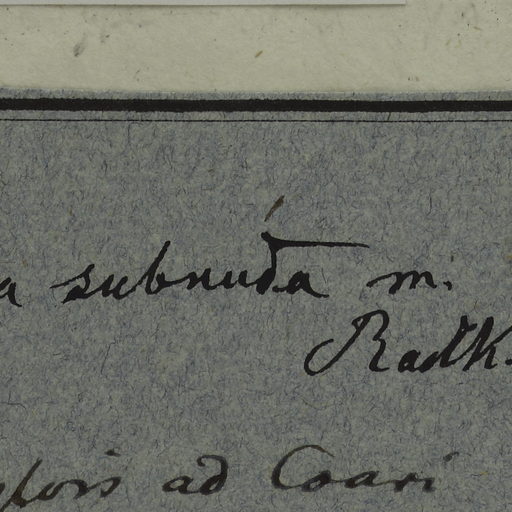 a subnuda m.
Radlk.
ad Coari